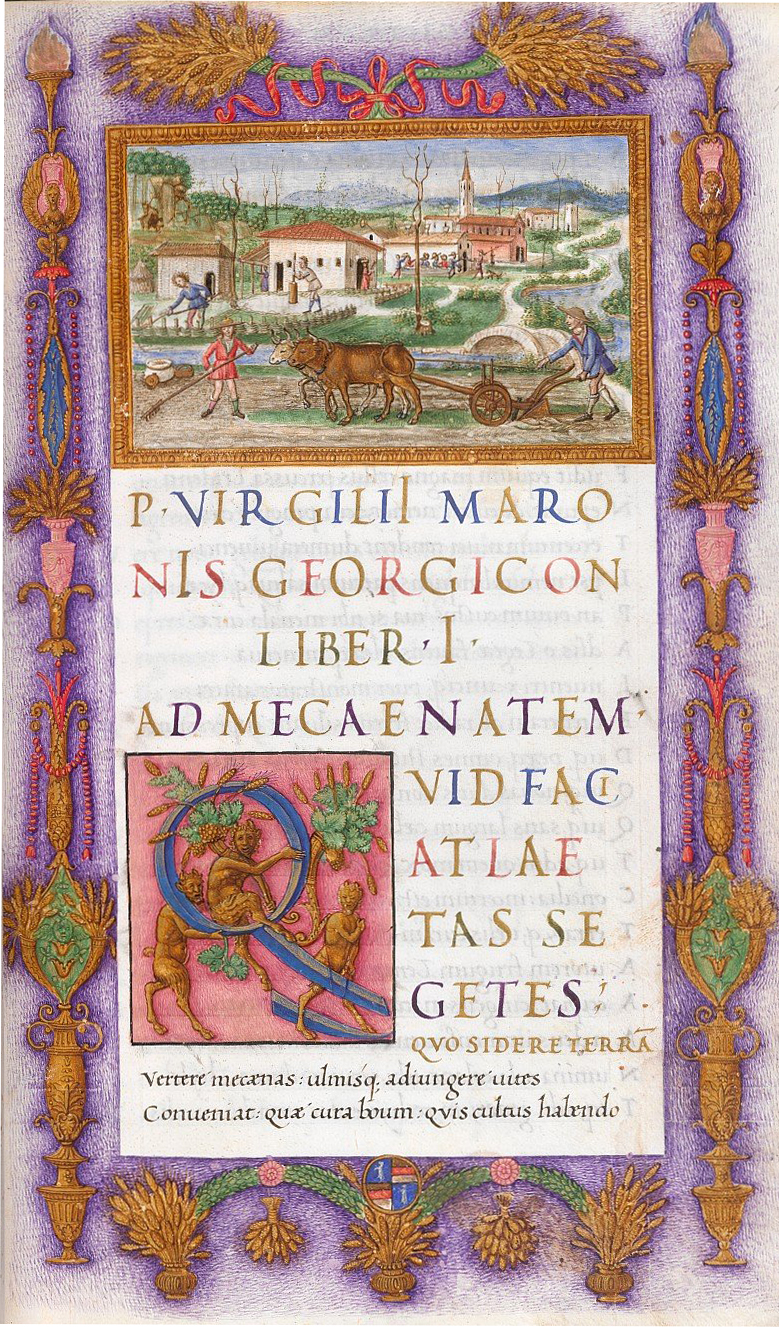 P · VIRGILII MARO
NIS GEORGICON
LIBER · I ·
AD MECAENATEM ·
QVID FACI
AT LAE
TAS SE
GETES:
QVO SIDERE TERRÃ
Vertere mecænas: ulmisq; adiungere uites
Conueniat: quæ cura boum: qvis cultus habendo